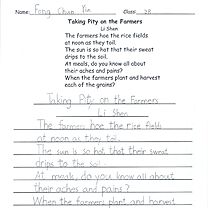 Name: Fong Chun Yin Class: 2B
Taking Pity on the Farmers
Li Shen
The farmers hoe the rice fields
at noon as they toil.
The sun is so hot that their sweat
drips to the soil.
At meals, do you know all about
their aches and pains?
When the farmers plant and harvest
each of the grains?
Taking Pity on the Farmers
Li Shen
The farmers hoe the rice fields
at noon as they toil.
The sun is so hot, that their sweat
drips to the soil.
At meals, do you know all about
their aches and pains?
When the farmers plant and harvest